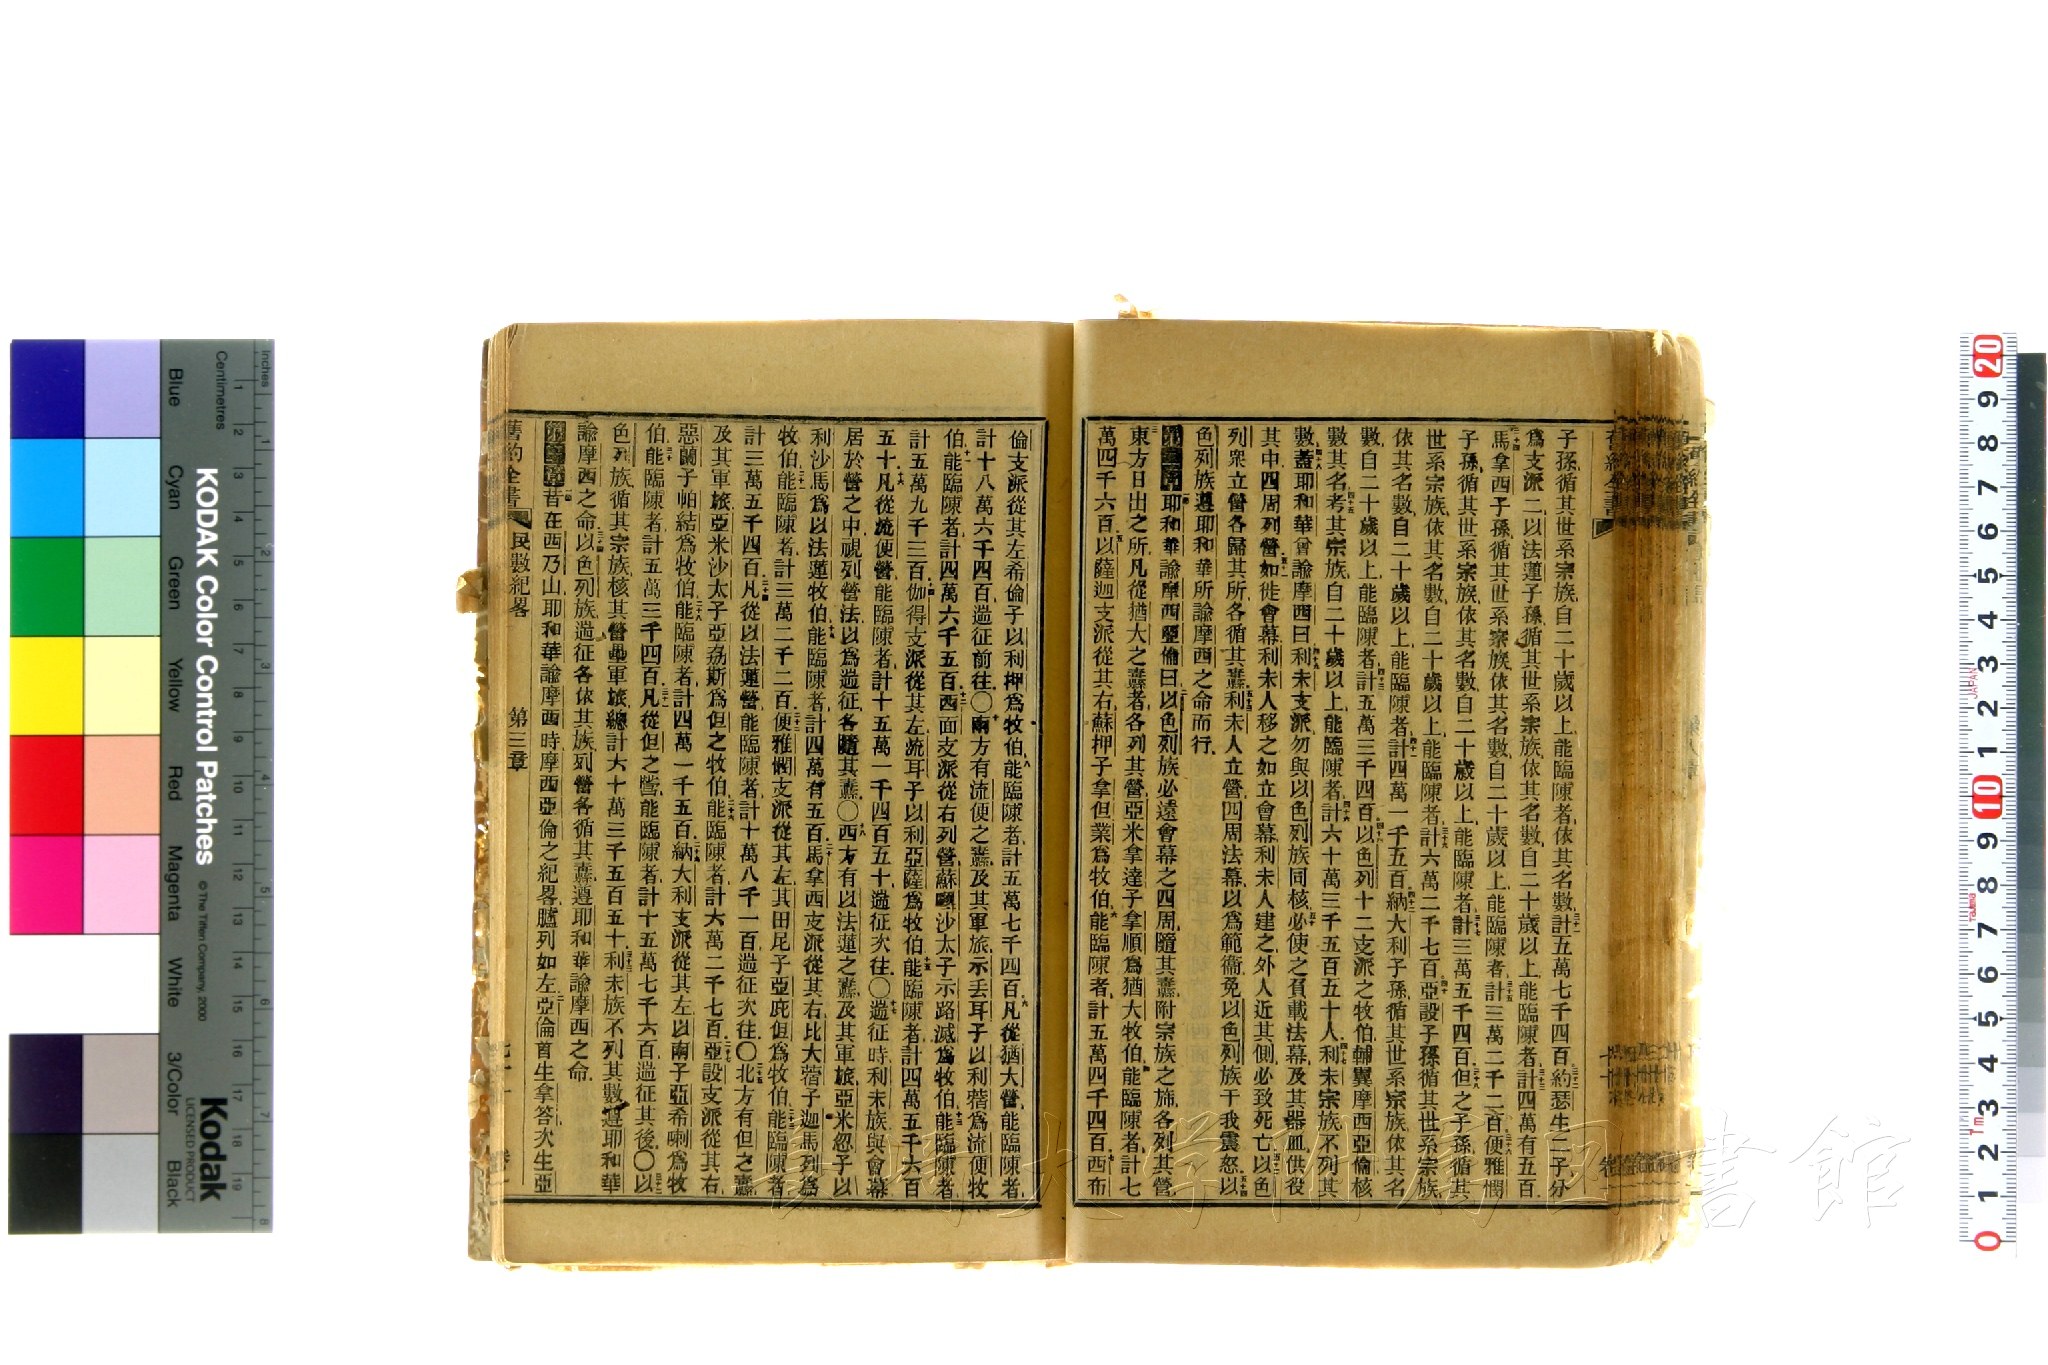 子孫循其世系宗族自二十歲以上能臨陳者依其名數計五萬七千四百約瑟生二子分
爲支派二以法蓮子孫循其世系宗族依其名數自二十歲以上能臨陳者計四萬有五百
馬拿西子孫循其世系宗族依其名數自二十歲以上能臨陳者計三萬二千二百便雅憫
子孫循其世系宗族依其名數自二十歲以上能臨陳者計三萬五千四百但之子孫循其
世系宗族依其名數自二十歲以上能臨陳者計六萬二千七百亞設子孫循其世系宗族
依其名數自二十歲以上能臨陳者計四萬一千五百納大利子孫循其世系宗族依其名
數自二十歲以上能臨陳者計五萬三千四百以色列十二支派之牧伯輔翼摩西亞倫核
數其名考其宗族自二十歲以上能臨陳者計六十萬三千五百五十人利未宗族不列其
數蓋耶和華曾諭摩西曰利未支派勿與以色列族同核必使之負載法幕及其器皿供役
其中四周列營如徙會幕利未人移之如立會幕利未人建之外人近其側必致死亡以色
列衆立營各歸其所各循其纛利未人立營四周法幕以爲範衞免以色列族干我震怒以
色列族遵耶和華所諭摩西之命而行
第二章耶和華諭摩西亞倫曰以色列族必遠會幕之四周隨其纛附宗族之旆各列其營
東方日出之所凡從猶大之纛者各列其營亞米拿達子拿順爲猶大牧伯能臨陳者計七
萬四千六百以薩迦支派從其右蘇押子拿但業爲牧伯能臨陳者計五萬四千四百西布
倫支派從其左希倫子以利押爲牧伯能臨陳者計五萬七千四百凡從猶大營能臨陳者
計十八萬六千四百遄征前往〇南方有流便之纛及其軍旅示丟耳子以利蓿爲流便牧
伯能臨陳者計四萬六千五百西面支派從右列營蘇利沙太子示路滅爲牧伯能臨陳者
計五萬九千三百伽得支派從其左流耳子以利亞薩爲牧伯能臨陳者計四萬五千六百
五十凡從流便營能臨陳者計十五萬一千四百五十遄征次往〇遄征時利未族與會幕
居於營之中視列營法以爲遄征各隨其纛〇西方有以法蓮之纛及其軍旅亞米忽子以
利沙馬爲以法蓮牧伯能臨陳者計四萬有五百馬拿西支派從其右比大蓿子迦馬列爲
牧伯能臨陳者計三萬二千二百便雅憫支派從其左其田尼子亞庇但爲牧伯能臨陳者
計三萬五千四百凡從以法蓮營能臨陳者計十萬八千一百遄征次往〇北方有但之纛
及其軍旅亞米沙太子亞希以斯爲但之牧伯能臨陳者計六萬二千七百亞設支派從其右
惡蘭子帕結爲牧伯能臨陳者計四萬一千五百納大利支派從其左以南子亞希喇爲牧
伯能臨陳者計五萬三千四百凡從但之營能臨陳者計十五萬七千六百遄征其後〇以
色列族循其宗族核其營壘軍旅總計六十萬三千五百五十利未族不列其數遵耶和華
諭摩西之命以色列族遄征各依其族列營各循其纛遵耶和華諭摩西之命
第三章昔在西乃山耶和華諭摩西時摩西亞倫之紀畧臚列如左亞倫首生拿答次生亞
舊約全書 民數紀畧 第三章
KODAK Color Control Patches
© The Tiffen Company, 2000
Kodak
LICENSED PRODUCT
Inches
Centimetres
Blue Cyan Green Yellow Red Magenta White 3/Color Black
JAPAN
附属図書館